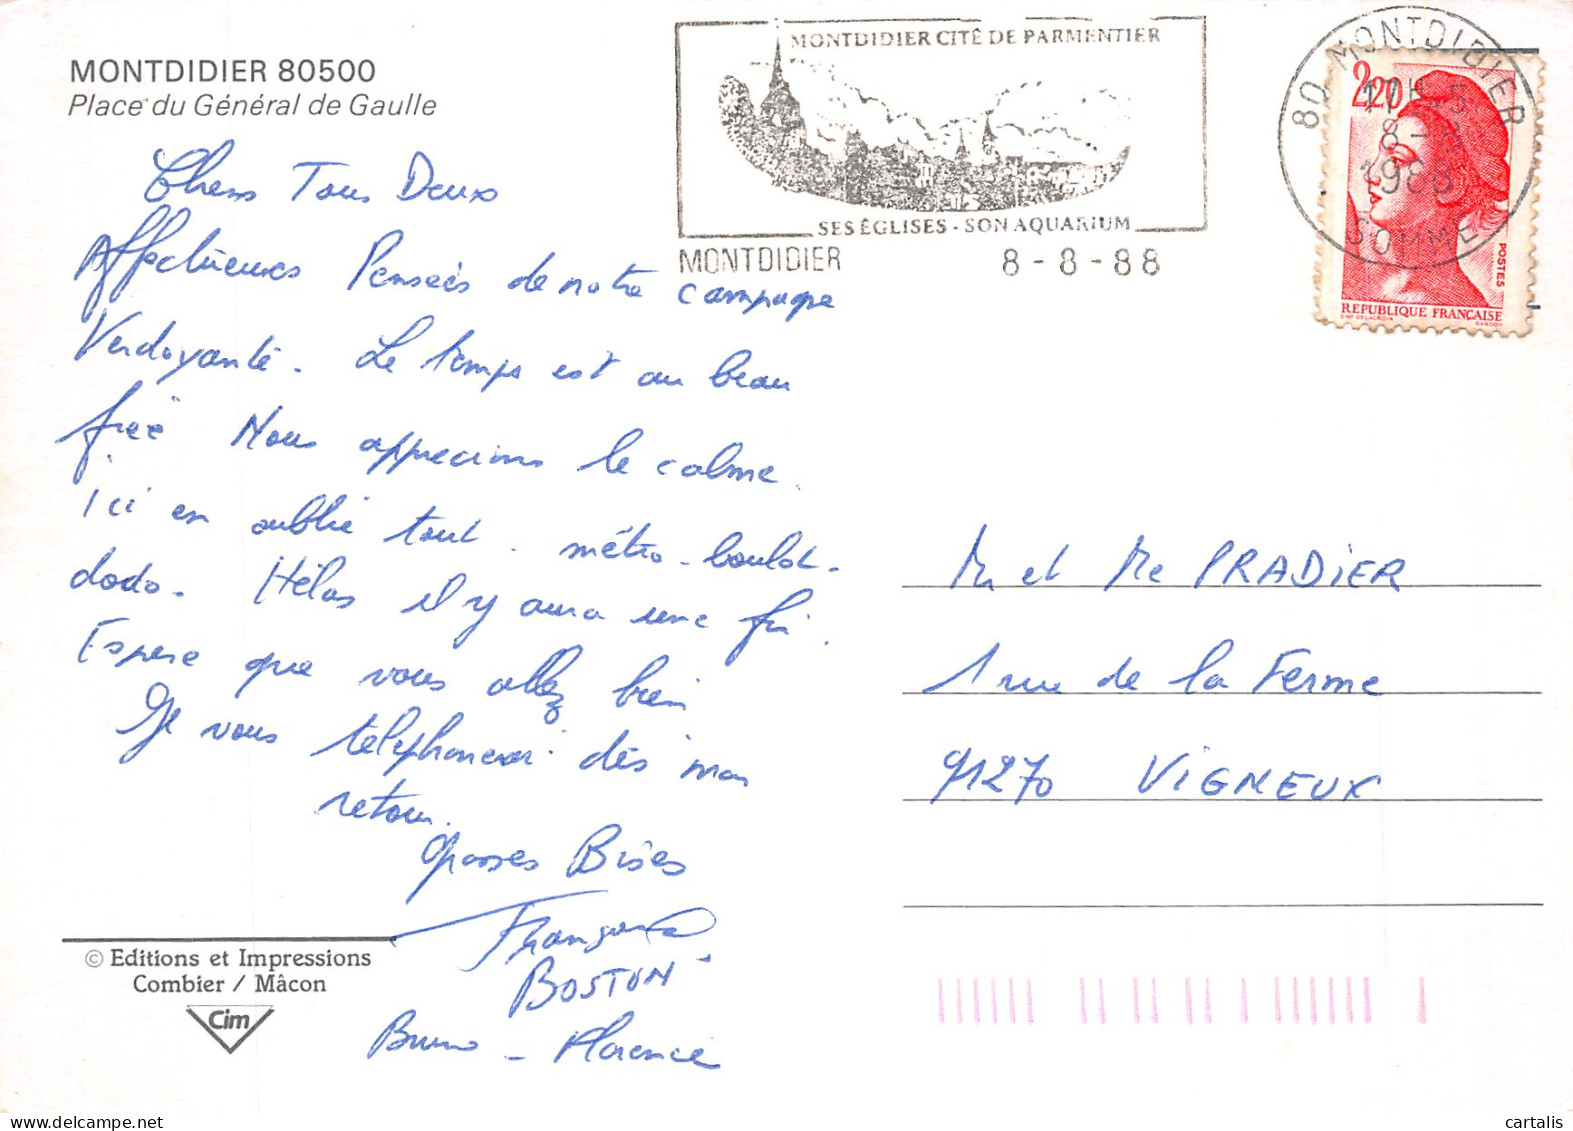 MONTDIDIER 80500
Place du Général de Gaulle
MONTDIDIER CITÉ DE PARMENTIER
SES ÉGLISES - SON AQUARIUM
MONTDIDIER 8 - 8 - 88
80 MONTDIDIER
8 - 8
1988
SOMME
2,20
POSTES
REPUBLIQUE FRANÇAISE
D'AP. DELACROIX GANDON
Chers Tous Deux
Affectueuses Pensées de notre campagne
Verdoyante. Le temps est au beau
fixe Nous apprecions le calme.
Ici on oublie tout. métro-boulot-
dodo. Hélas il y aura une fin.
Espere que vous allez bien
Je vous telephonerai dès mon
retour.
Grosses Bises
Françoise
BOSTON
Bruno - Florence
Mr et Me PRADIER
1 rue de la Ferme
91270 VIGNEUX
© Editions et Impressions
Combier / Mâcon
Cim
cartalis